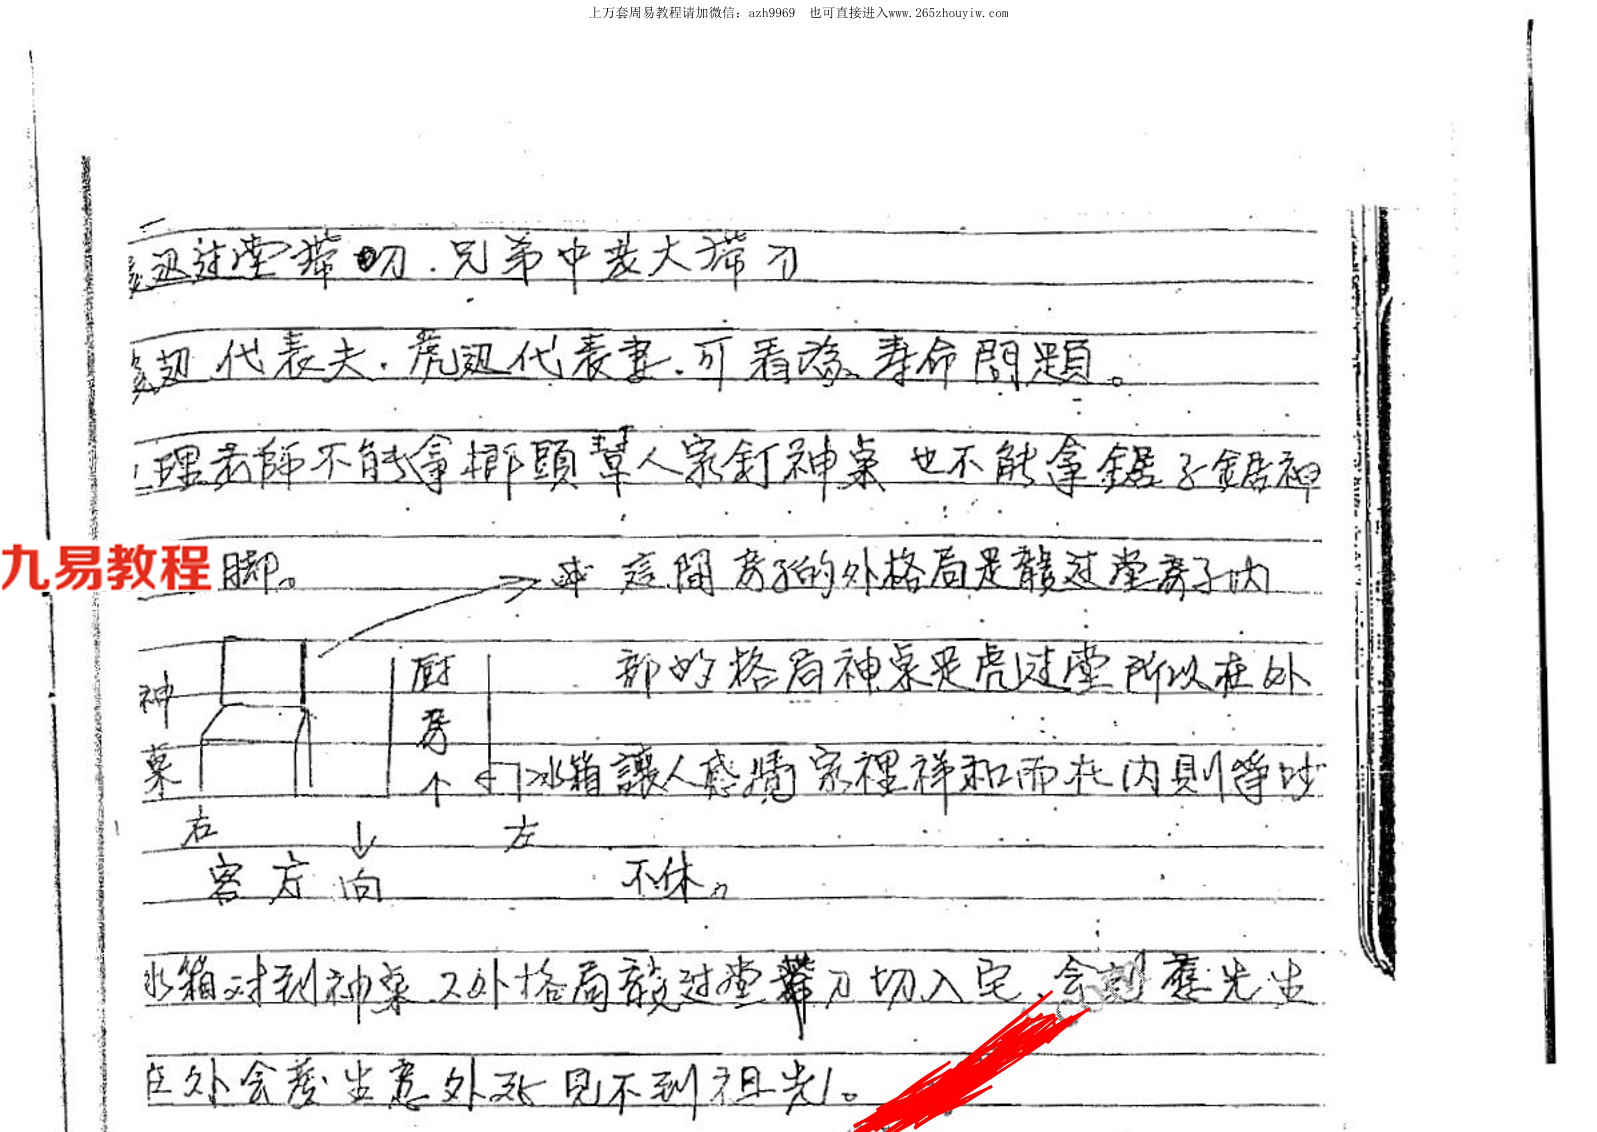 上万套周易教程请加微信: azh9969 也可直接进入www.265zhouyiw.com
过堂带切.兄弟中老大带刀
边代表夫.虎边代表妻.可看為寿命問題。
理老師不能拿榔頭幫人家釘神桌也不能拿鋸子鋸神
九易教程
脚。
這間房子的外格局是龍过堂房子内
神桌
厨房
部的格局神桌是虎过堂所以在外
冰箱讓人感情家裡祥和而在内則爭吵
右
左
客方向
不休。
冰箱对到神桌.又外格局龍过堂帶刀切入宅.会剋應先生
在外会發生意外死見不到祖先。